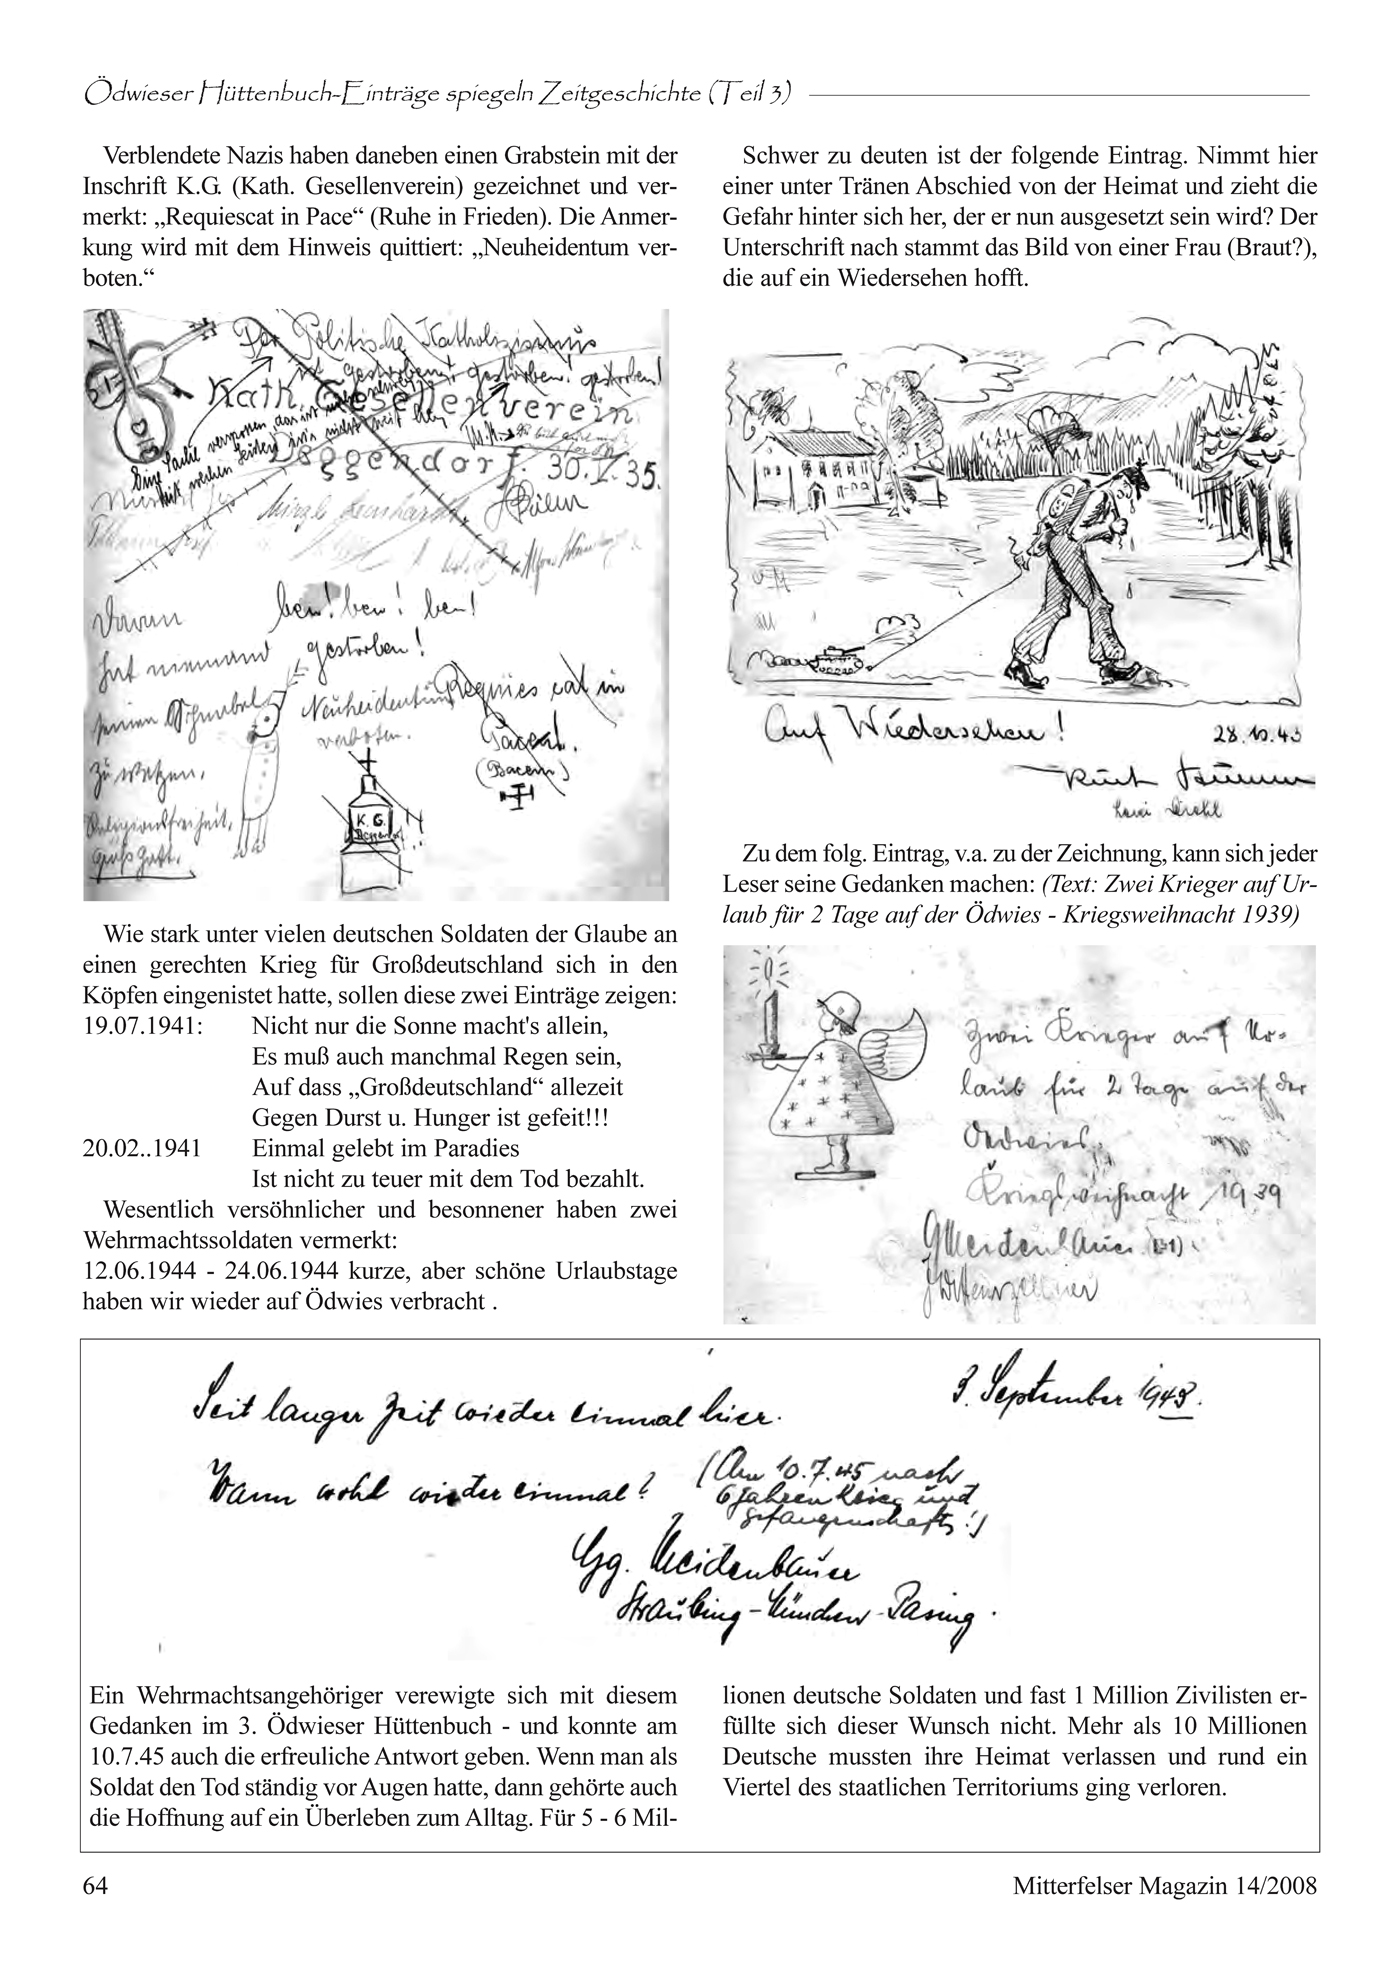 Ödwieser Hüttenbuch-Einträge spiegeln Zeitgeschichte (Teil 3)
Verblendete Nazis haben daneben einen Grabstein mit der
Inschrift K.G. (Kath. Gesellenverein) gezeichnet und ver-
merkt: „Requiescat in Pace“ (Ruhe in Frieden). Die Anmer-
kung wird mit dem Hinweis quittiert: „Neuheidentum ver-
boten.“
Der Politische Katholizismus
ist gestorben! gestorben! gestorben!
Kath. Gesellenverein
Deggendorf. 30.V.35.
Davon
hat niemand
seinen Schnabel
zu wetzen.
Religionsfreiheit.
Grüß Gott.
ben! ben! ben!
gestorben!
Neuheidentum
verboten.
Requiescat in
Pacem.
(Bacem)
K. G.
Deggendorf
Wie stark unter vielen deutschen Soldaten der Glaube an
einen gerechten Krieg für Großdeutschland sich in den
Köpfen eingenistet hatte, sollen diese zwei Einträge zeigen:
19.07.1941: Nicht nur die Sonne macht's allein,
Es muß auch manchmal Regen sein,
Auf dass „Großdeutschland“ allezeit
Gegen Durst u. Hunger ist gefeit!!!
20.02..1941 Einmal gelebt im Paradies
Ist nicht zu teuer mit dem Tod bezahlt.
Wesentlich versöhnlicher und besonnener haben zwei
Wehrmachtssoldaten vermerkt:
12.06.1944 - 24.06.1944 kurze, aber schöne Urlaubstage
haben wir wieder auf Ödwies verbracht .
Schwer zu deuten ist der folgende Eintrag. Nimmt hier
einer unter Tränen Abschied von der Heimat und zieht die
Gefahr hinter sich her, der er nun ausgesetzt sein wird? Der
Unterschrift nach stammt das Bild von einer Frau (Braut?),
die auf ein Wiedersehen hofft.
Auf Wiedersehen!
28.10.43
Zu dem folg. Eintrag, v.a. zu der Zeichnung, kann sich jeder
Leser seine Gedanken machen: (Text: Zwei Krieger auf Ur-
laub für 2 Tage auf der Ödwies - Kriegsweihnacht 1939)
Zwei Krieger auf Ur-
laub für 2 Tage auf der
Oedwies.
Kriegsweihnacht 1939
GMeidenbauer
Seit langer Zeit wieder einmal hier.
3. September 1943.
Wann wohl wieder einmal?
(Am 10.7.45 nach
6 Jahren Krieg und
Gefangenschaft!)
Gg. Meidenbauer
Straubing-München-Pasing.
Ein Wehrmachtsangehöriger verewigte sich mit diesem
Gedanken im 3. Ödwieser Hüttenbuch - und konnte am
10.7.45 auch die erfreuliche Antwort geben. Wenn man als
Soldat den Tod ständig vor Augen hatte, dann gehörte auch
die Hoffnung auf ein Überleben zum Alltag. Für 5 - 6 Mil-
lionen deutsche Soldaten und fast 1 Million Zivilisten er-
füllte sich dieser Wunsch nicht. Mehr als 10 Millionen
Deutsche mussten ihre Heimat verlassen und rund ein
Viertel des staatlichen Territoriums ging verloren.
64
Mitterfelser Magazin 14/2008